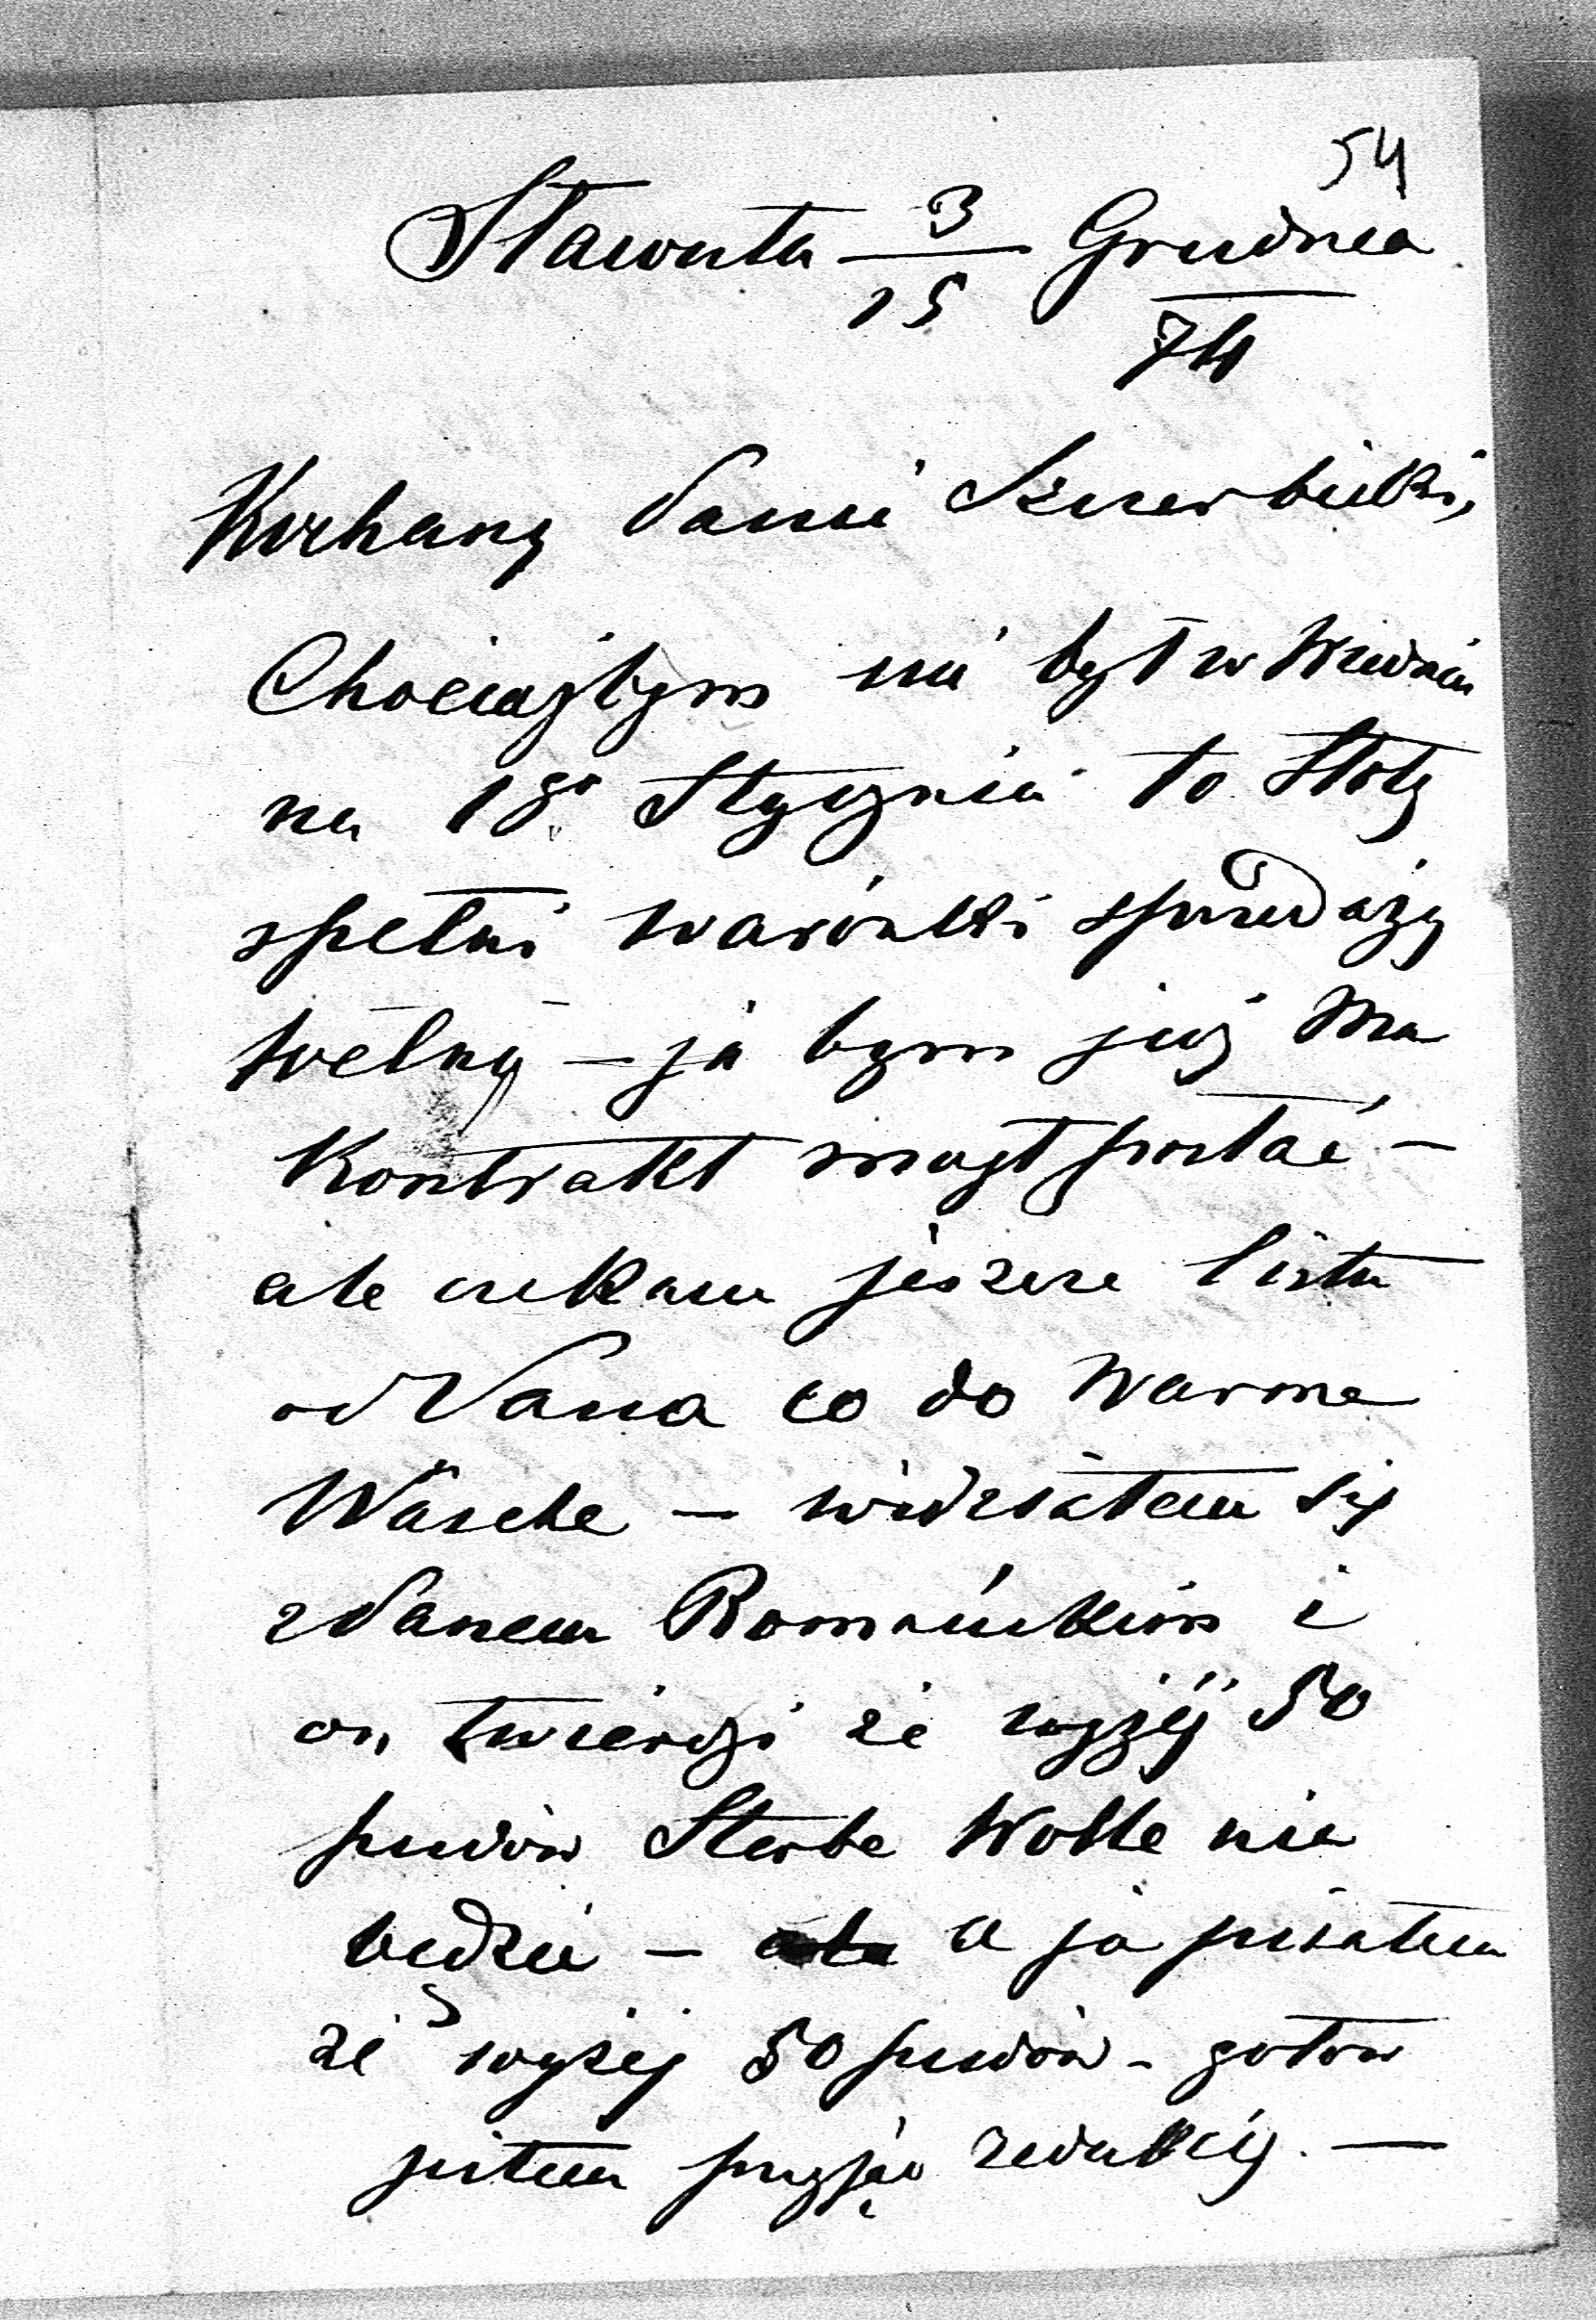 54
Sławuta 3/15 Grudnia
74
Kochany Panie
Chociażbym nie był w Wiedniu
na 1go Stycznia to Stotz
spełni warónki sprzedaży
wełny – ja bym już ma
Kontrakt mógł posłać –
ale czekam jeszcze listu
od Pana co do Warme
Wäsche – widziałem się
z Panem Románskim i
on twierdzi że wyżéj 50
pudów Sterbe Wolle nie
będzie – a ja pisałem
że wyżej 50 pudów – gotow
jestem przyjąc redukcię. –